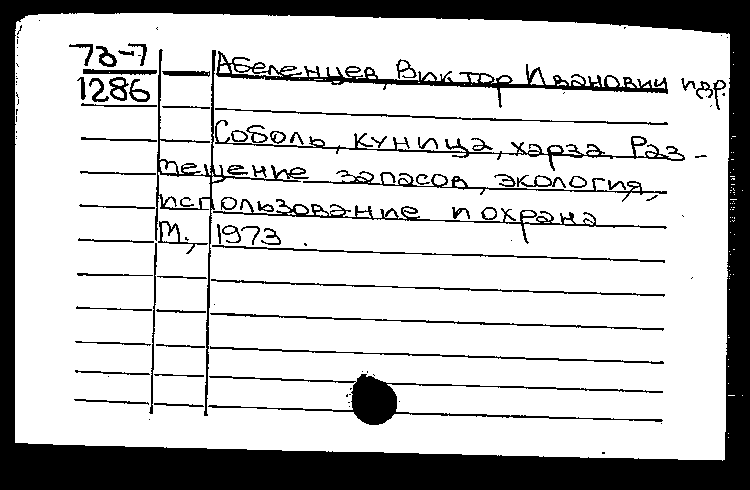 73-7
1286
Абеленцев, Виктор Иванович и др.
Соболь, куница, харза. Раз-
мещение запасов, экология,
использование и охрана
М., 1973.